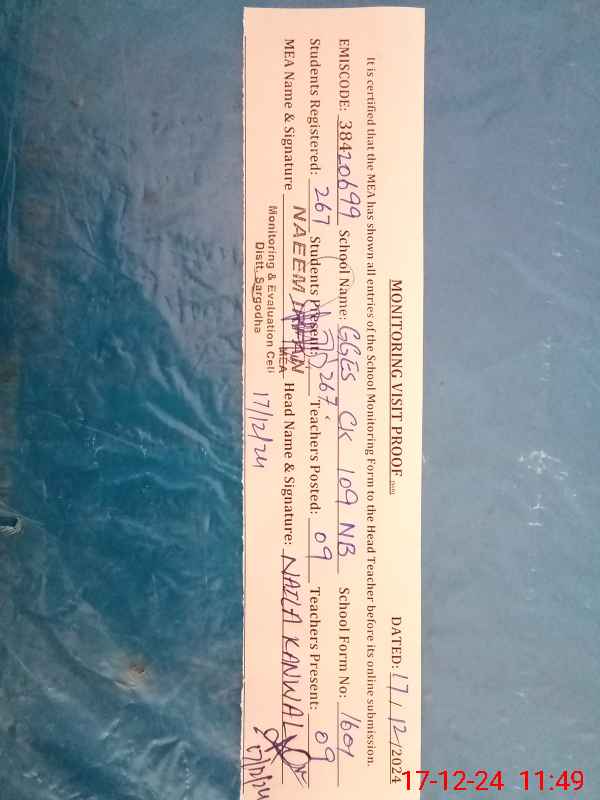 MONITORING VISIT PROOF DATED: 17/12/2024
It is certified that the MEA has shown all entries of the School Monitoring Form to the Head Teacher before its online submission.
EMISCODE: 38420699 School Name: GGES CK 109 NB School Form No: 1601
Students Registered: 267 Students Present: 267 Teachers Posted: 09 Teachers Present: 09
MEA Name & Signature NAEEM Head Name & Signature: NAILA KANWAL
MEA
Monitoring & Evaluation Cell
Distt. Sargodha
17/12/24
17/12/24
17-12-24 11:49